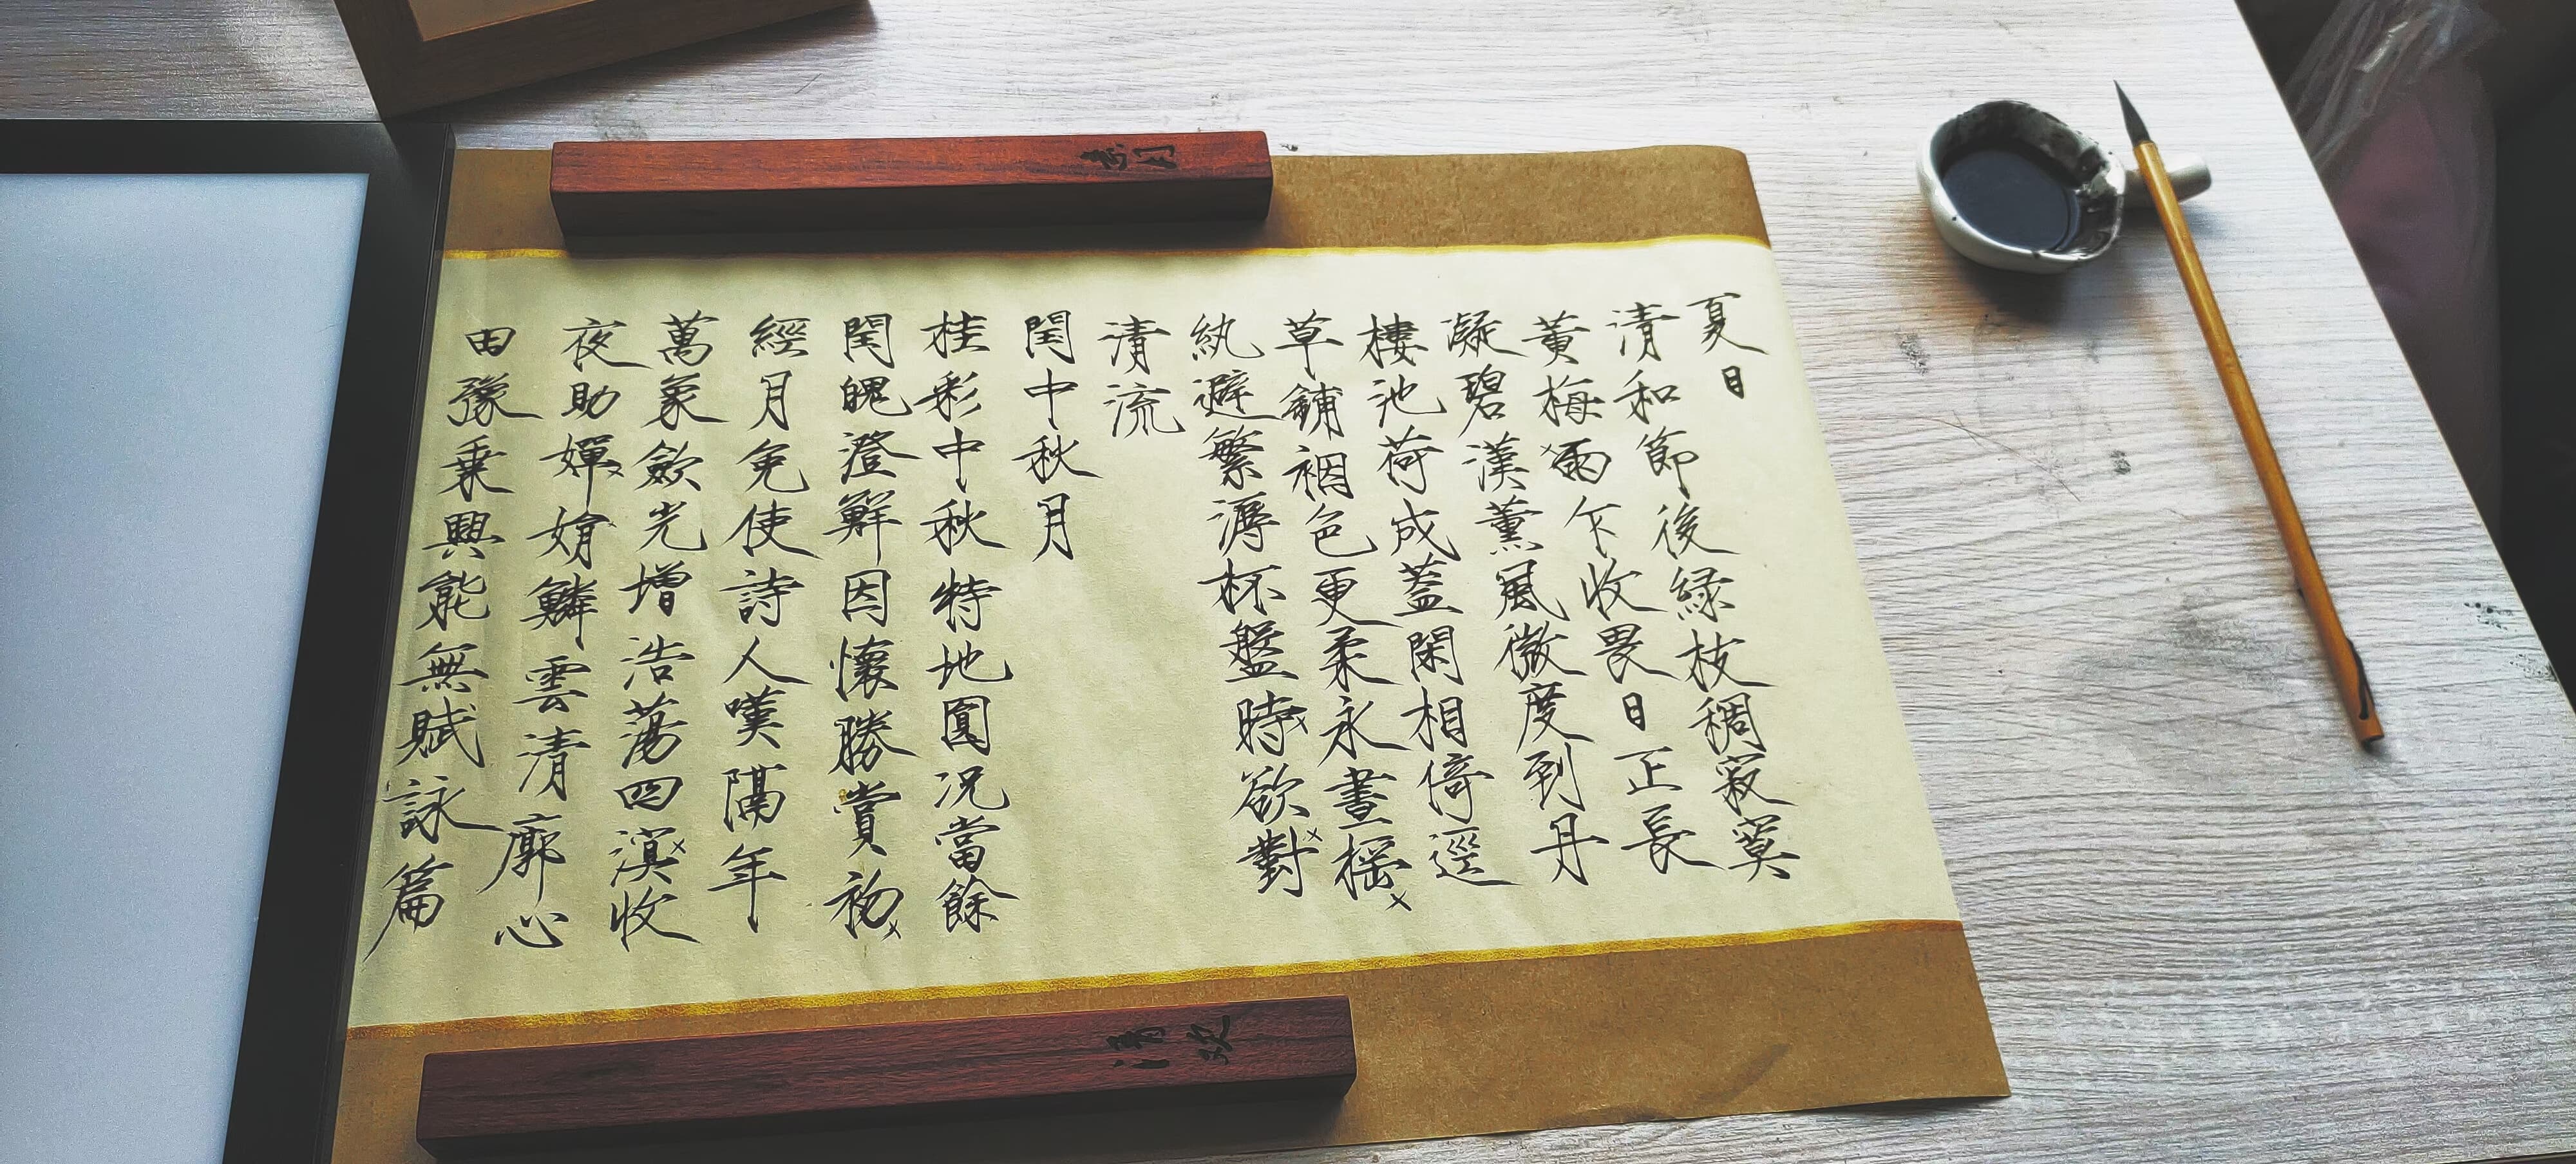 夏日
清和節後緑枝稠寂寞
黃梅雨乍收畏日正長
凝碧漢薰風微度到丹
樓池荷成蓋閑相倚逕
草鋪裀色更柔永晝搖
紈避繁溽杯盤時欲對
清流
閏中秋月
桂彩中秋特地圓況當餘
閏魄澄鮮因懷勝賞初
經月免使詩人嘆隔年
萬象歛光增浩蕩四溟收
夜助嬋娟鱗雲清廓心
田豫乗興能無賦詠篇